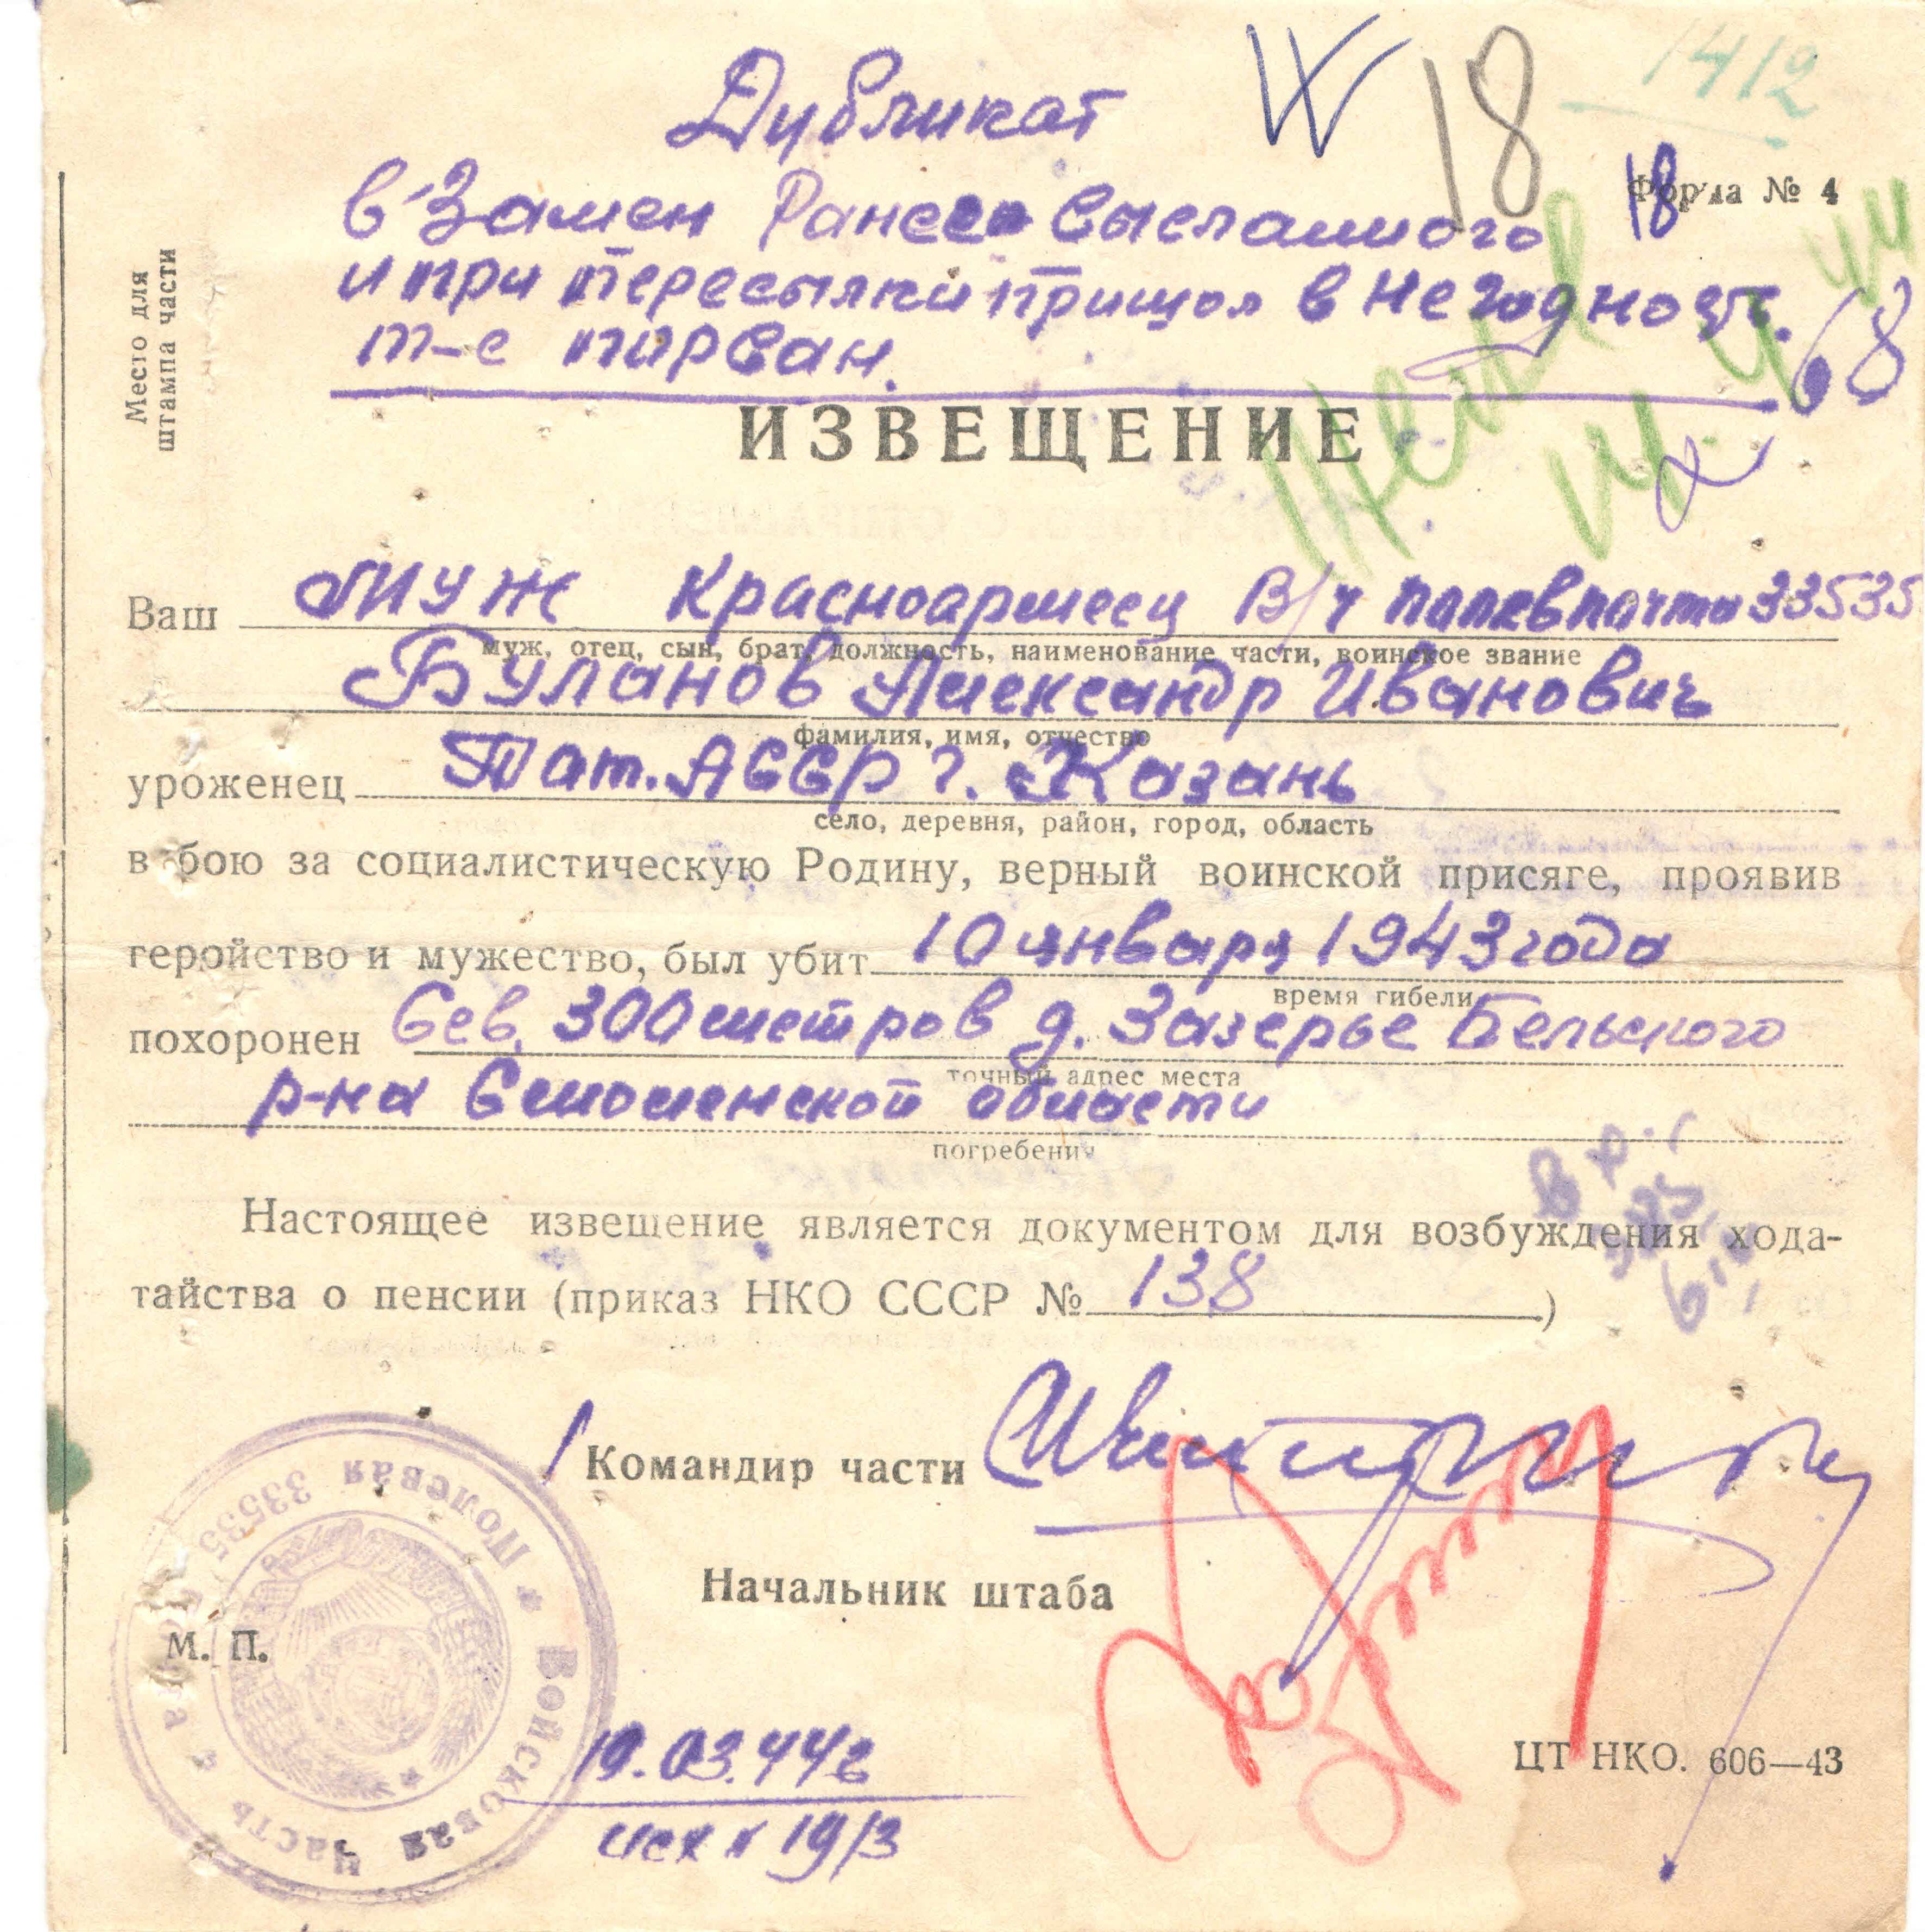 Дубликат
18
1412
в Замен Ранее высланного
18
Форма № 4
и при пересылки пришол в негодность.
т-е порван.
68
Место для
штампа части
ИЗВЕЩЕНИЕ
Ваш муж Красноармеец В/ч полев почта 33535
муж, отец, сын, брат, должность, наименование части, воинское звание
Буланов Александр Иванович
фамилия, имя, отчество
уроженец Тат. АССР г. Казань
село, деревня, район, город, область
в бою за социалистическую Родину, верный воинской присяге, проявив
геройство и мужество, был убит 10 января 1943 года
время гибели
похоронен Сев. 300 метров д. Зазерье Бельского
точный адрес места
р-на Смоленской области
погребения
Настоящее извещение является документом для возбуждения хода-
тайства о пенсии (приказ НКО СССР № 138 )
/ Командир части
Начальник штаба
М. П.
Войсковая Часть * Полевая Почта 33535
ЦТ НКО. 606—43
19.03.44г
исх 19/3